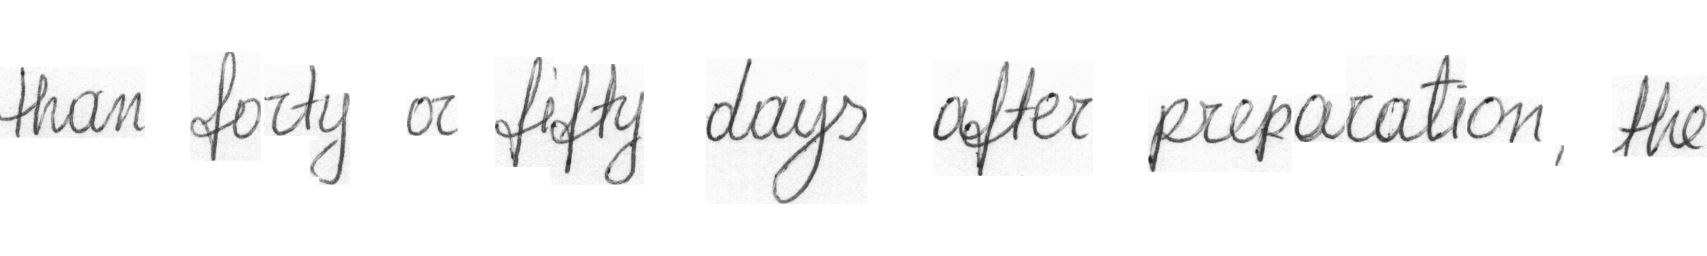 than forty or fifty days after preparation, the